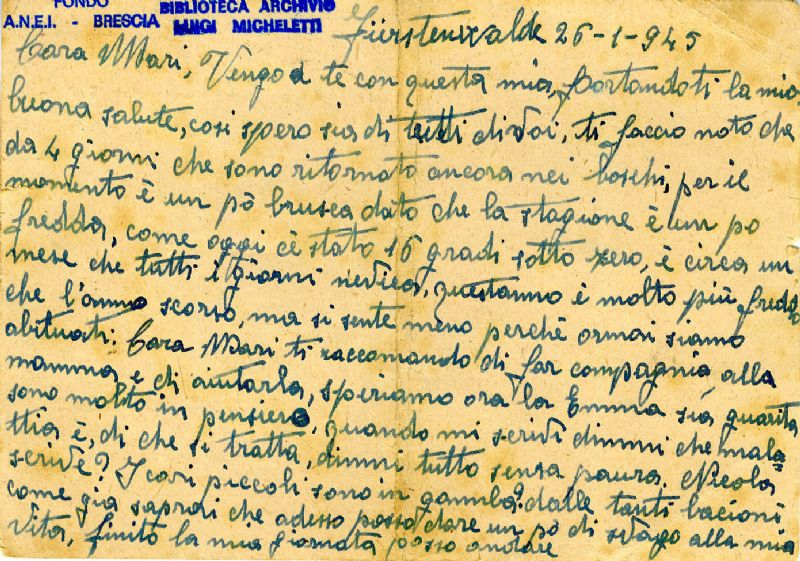 FONDO
A.N.E.I. - BRESCIA
BIBLIOTECA ARCHIVIO
LUIGI MICHELETTI
Fürstenwalde 26-1-945
Cara Mari, Vengo a te con questa mia, portandoti la mia
buona salute, cosi spero sia di tutti di voi, ti faccio noto che
da 4 giorni che sono ritornato ancora nei boschi, per il
momento è un pò brusca dato che la stagione è un po
fredda, come oggi cè stato 16 gradi sotto zero, è circa un
mese che tutti i giorni nevica, questanno è molto più freddo
che l'anno scorso, ma si sente meno perchè ormai siamo
abituati: Cara Mari ti raccomando di far compagnia alla
mamma e di aiutarla, speriamo ora la Emma sia guarita
sono molto in pensiero, quando mi scrivi dimmi che mala=
ttia è, di che si tratta, dimmi tutto senza paura. Nicola
scrive? I cari piccoli sono in gamba? dalle tanti bacioni
come gia saprai che adesso posso dare un pò di svago alla mia
vita, finito la mia giornata posso andare